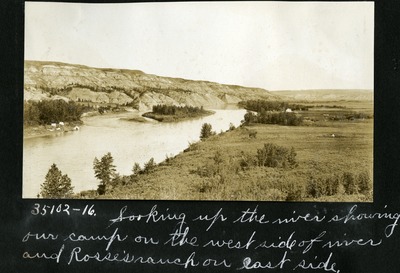 35102-16. Looking up the river showing
our camp on the west side of river
and Rosse's ranch on east side.